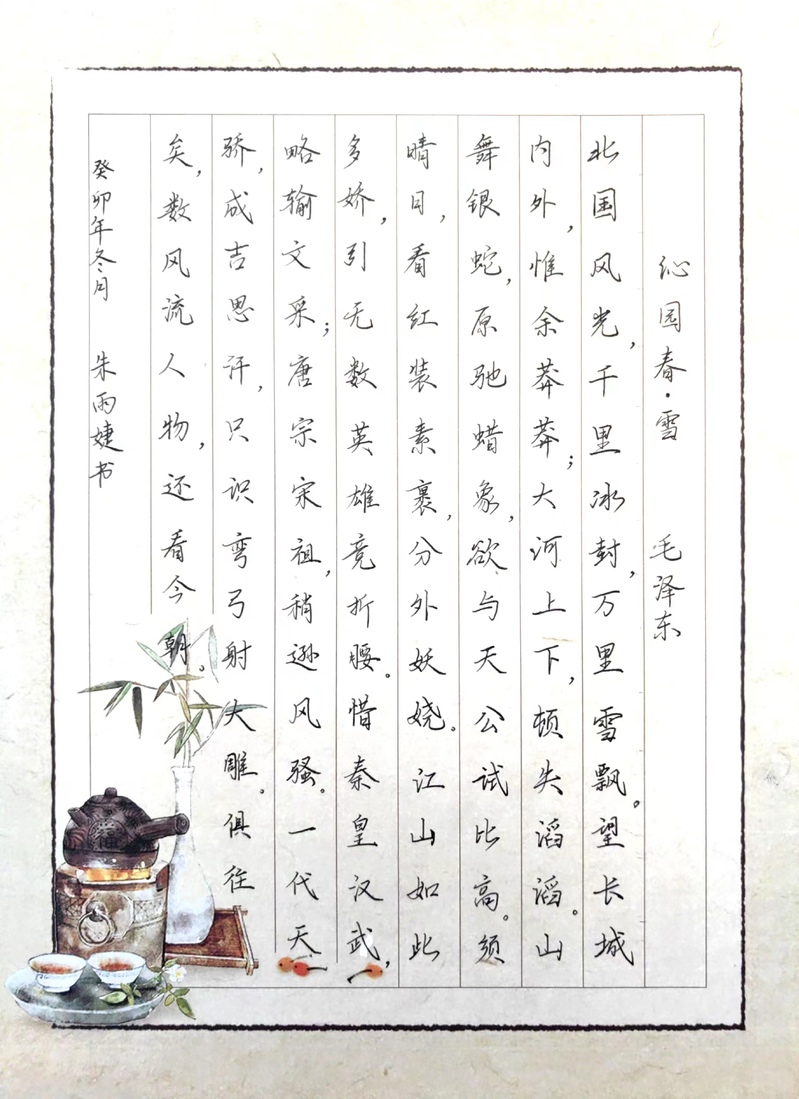 沁园春·雪 毛泽东
北国风光，千里冰封，万里雪飘。望长城
内外，惟余莽莽；大河上下，顿失滔滔。山
舞银蛇，原驰蜡象，欲与天公试比高。须
晴日，看红装素裹，分外妖娆。江山如此
多娇，引无数英雄竞折腰。惜秦皇汉武，
略输文采；唐宗宋祖，稍逊风骚。一代天
骄，成吉思汗，只识弯弓射大雕。俱往
矣，数风流人物，还看今朝。
癸卯年冬月 朱雨婕书